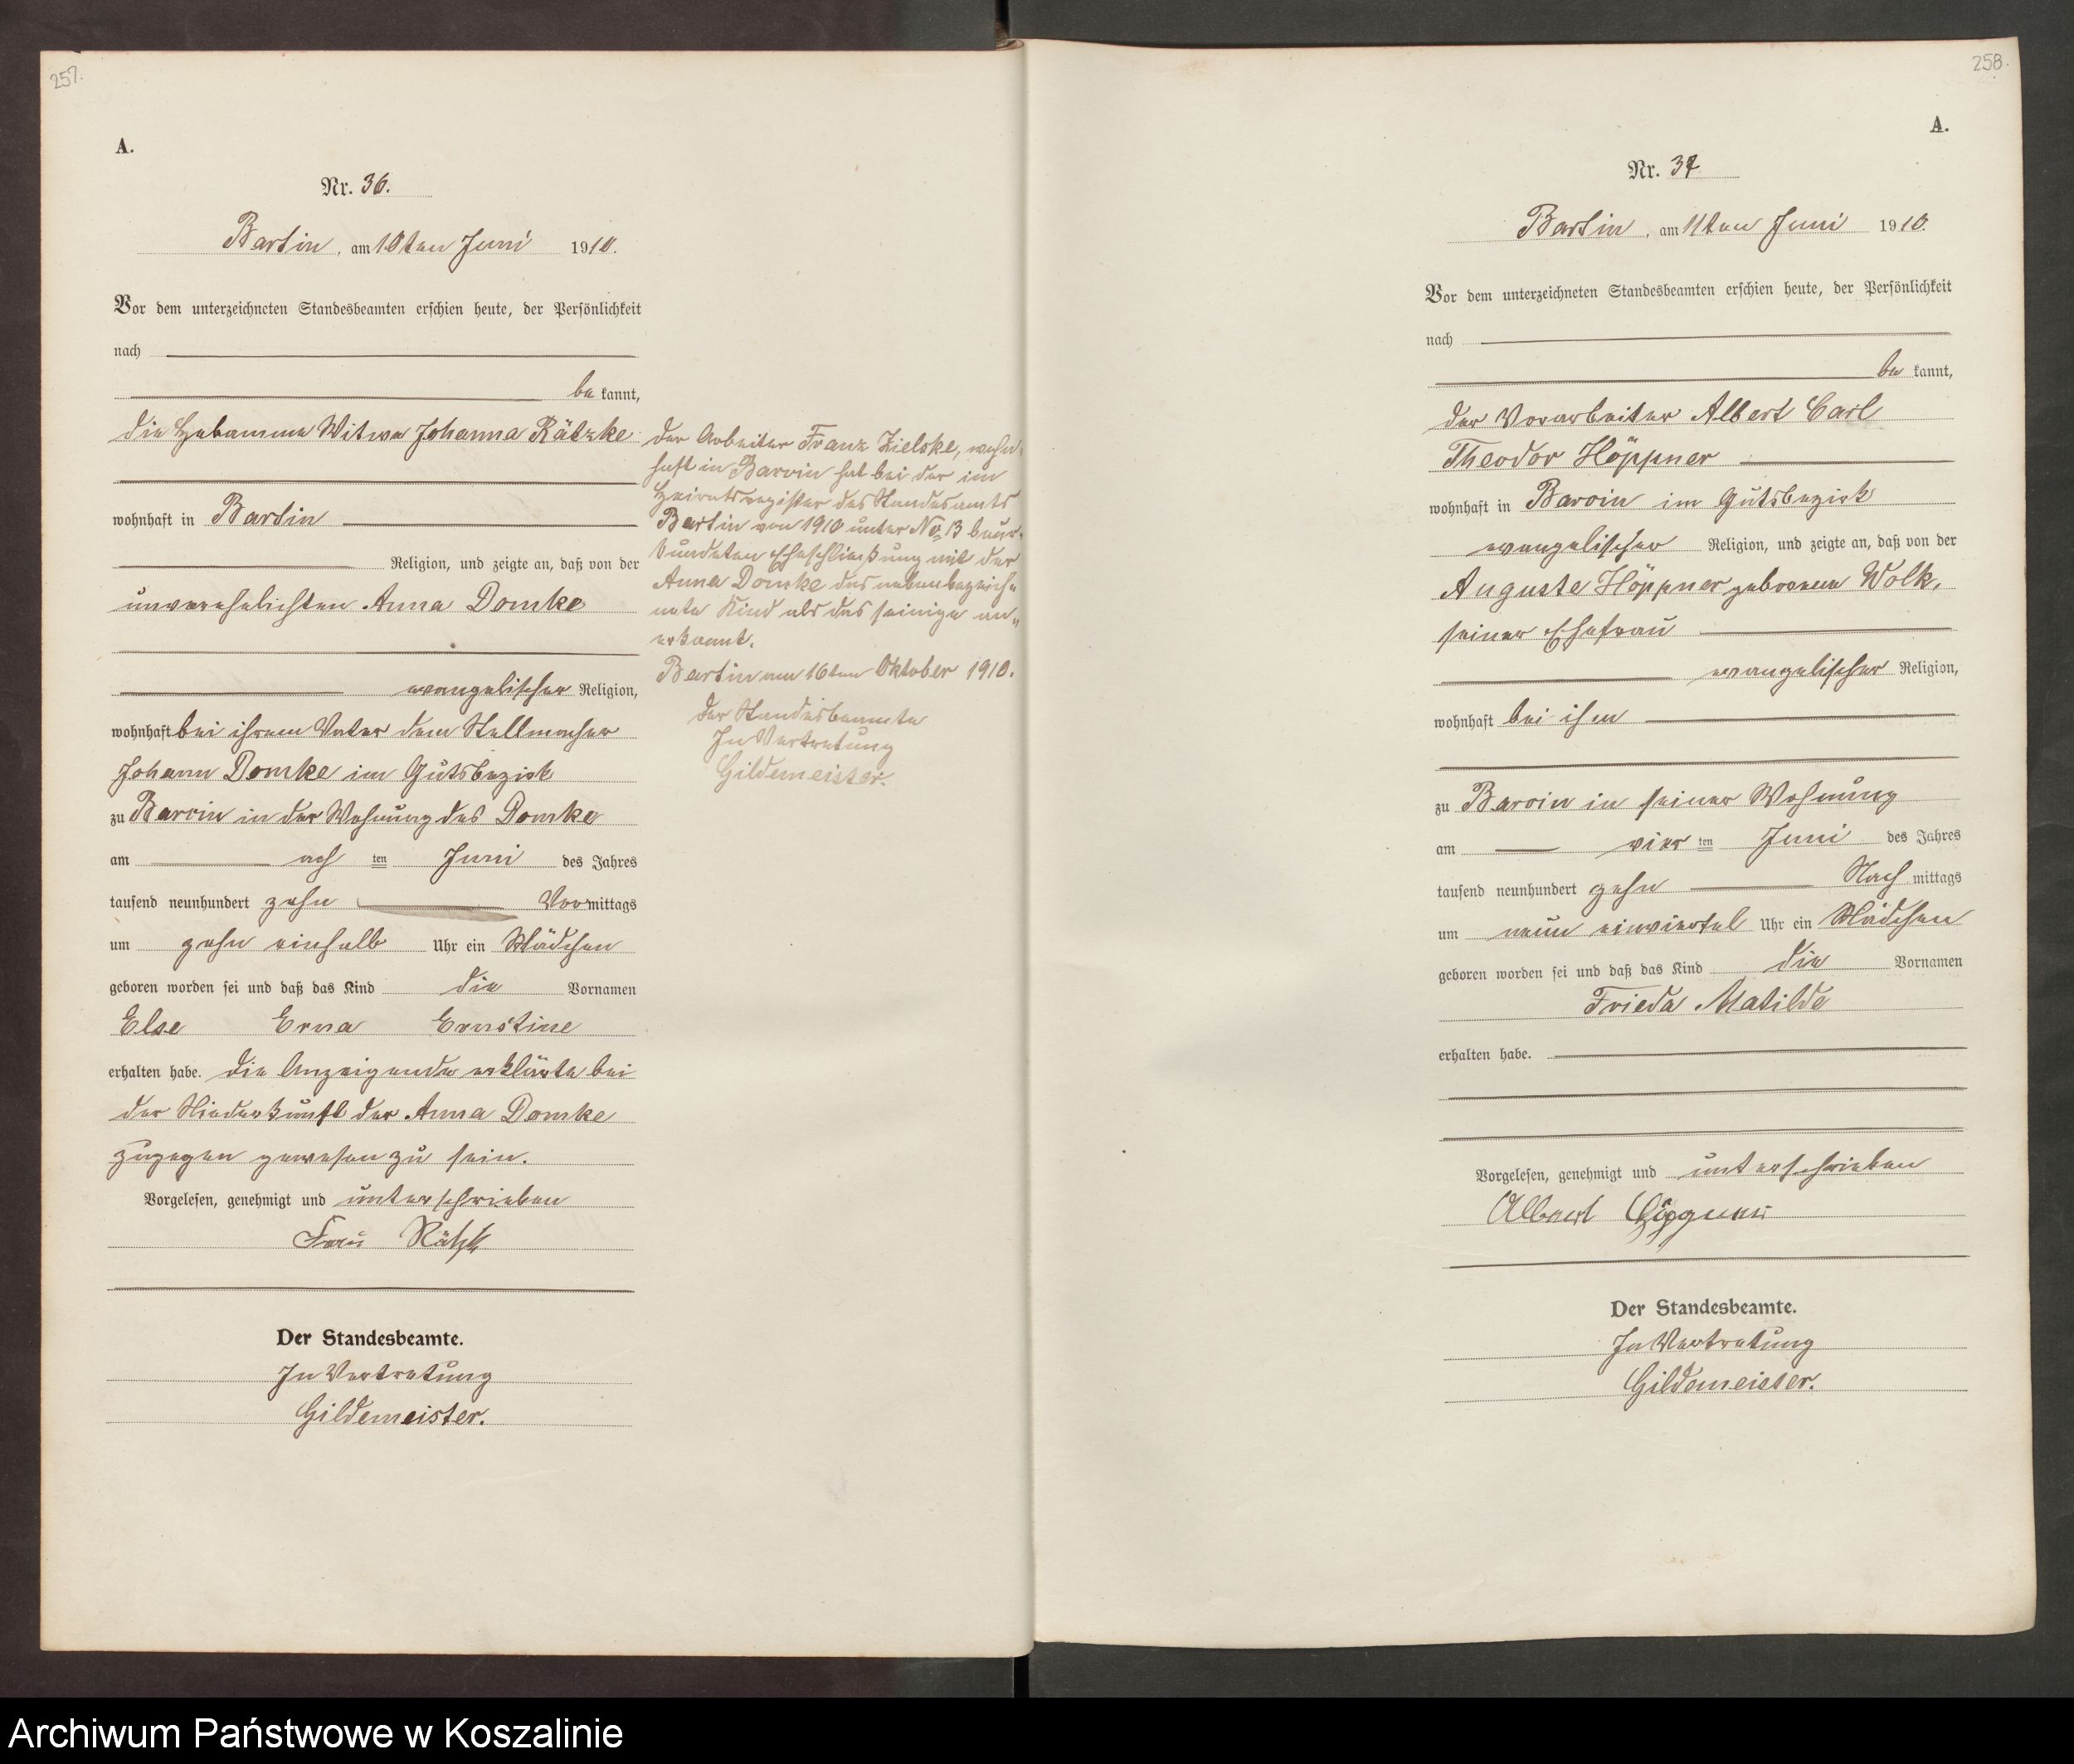 257.
A.
Nr. 36.
Bartin, am 10ten Juni 1910.
Vor dem unterzeichneten Standesbeamten erschien heute, der Persönlichkeit
nach
be kannt,
die Hebamme Witwe Johanna Rätzke
wohnhaft in Bartin
Religion, und zeigte an, daß von der
unverehelichten Anna Domke
evangelischer Religion,
wohnhaft bei ihrem Vater dem Stellmacher
Johann Domke im Gutsbezirk
zu Barvin in der Wohnung des Domke
am ach ten Juni des Jahres
tausend neunhundert zehn Vormittags
um zehn einhalb Uhr ein Mädchen
geboren worden sei und daß das Kind die Vornamen
Else Erna Ernstine
erhalten habe. Die Anzeigende erklärte bei
der Niederkunft der Anna Domke
zugegen gewesen zu sein.
Vorgelesen, genehmigt und unterschrieben
Frau Rätzk
Der Standesbeamte.
In Vertretung
Gildemeister.
Der Arbeiter Franz Zielske, wohn-
haft in Barvin hat bei der im
Heiratsregister des Standesamts
Bartin von 1910 unter No 13 beur-
kundeten Eheschließung mit der
Anna Domke das nebenbezeich-
nete Kind als das seinige an-
erkannt.
Bartin am 16ten Oktober 1910.
Der Standesbeamte
In Vertretung
Gildemeister.
258.
A.
Nr. 37
Bartin, am 11ten Juni 1910.
Vor dem unterzeichneten Standesbeamten erschien heute, der Persönlichkeit
nach
be kannt,
der Vorarbeiter Albert Carl
Theodor Höppner
wohnhaft in Barvin im Gutsbezirk
evangelischer Religion, und zeigte an, daß von der
Auguste Höppner geborene Wolk,
seiner Ehefrau
evangelischer Religion,
wohnhaft bei ihm
zu Barvin in seiner Wohnung
am vier ten Juni des Jahres
tausend neunhundert zehn Nach mittags
um neun einviertel Uhr ein Mädchen
geboren worden sei und daß das Kind die Vornamen
Frieda Matilde
erhalten habe.
Vorgelesen, genehmigt und unterschrieben
Albert Höppner
Der Standesbeamte.
In Vertretung
Gildemeister.
Archiwum Państwowe w Koszalinie